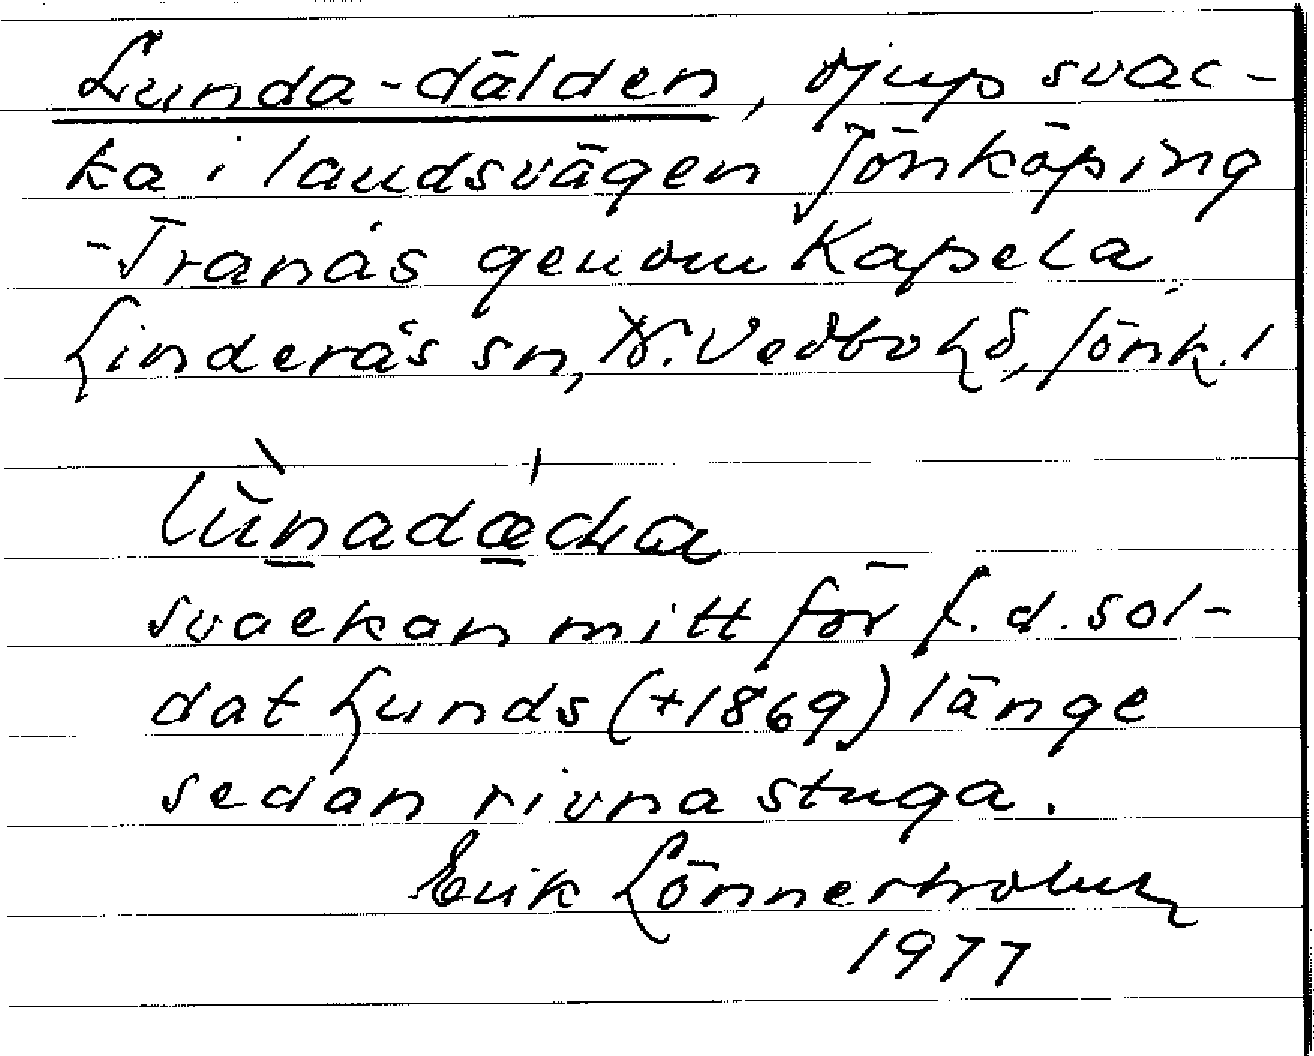 Lunda-dälden, djup svac-
ka i landsvägen Jönköping
-Tranås genom Kapela,
Linderås sn, N. Vedbo hd, Jönk. l
lùnadæ̀
svackan mitt för f.d. sol-
dat Lunds (+1869) länge
sedan rivna stuga.
Erik Lönnerholm
1977